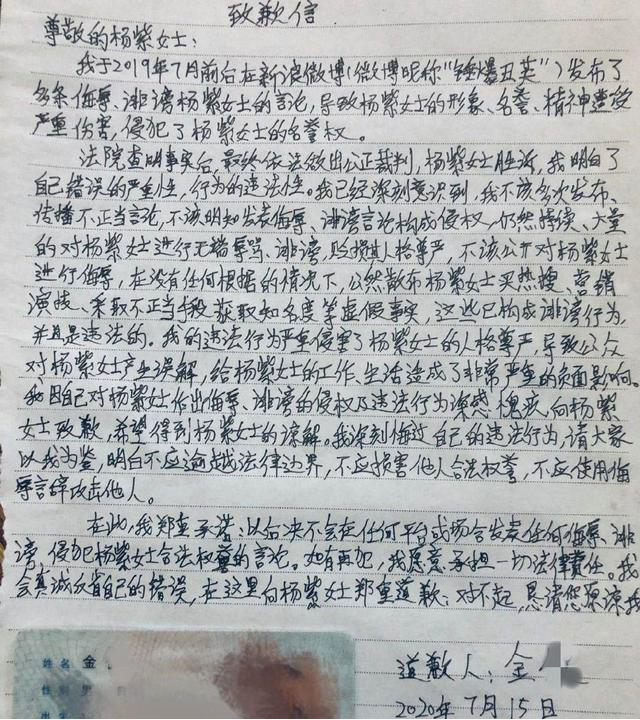 致歉信
尊敬的杨紫女士：
我于2019年7月前后在新浪微博(微博昵称“锤爆丑英”)发布了
多条侮辱、诽谤杨紫女士的言论，导致杨紫女士的形象、名誉、精神遭受
严重伤害，侵犯了杨紫女士的名誉权。
法院查明事实后，最终依法做出公正裁判，杨紫女士胜诉，我明白了
自己错误的严重性，行为的违法性。我已经深刻意识到，我不该多次发布、
传播不正当言论，不该明知发表侮辱、诽谤言论构成侵权，仍然持续、大量
的对杨紫女士进行无端辱骂、诽谤，贬损其人格尊严，不该公开对杨紫女士
进行侮辱，在没有任何根据的情况下，公然散布杨紫女士买热搜、营销
演技、采取不正当手段获取知名度等虚假事实，这些已构成诽谤行为，
并且是违法的。我的违法行为严重侵害了杨紫女士的人格尊严，导致公众
对杨紫女士产生误解，给杨紫女士的工作、生活造成了非常严重的负面影响。
我因自己对杨紫女士作出侮辱、诽谤的侵权及违法行为深感愧疚，向杨紫
女士致歉，希望得到杨紫女士的谅解。我深刻悔过自己的违法行为，请大家
以我为鉴，明白不应逾越法律边界，不应损害他人合法权誉，不应使用侮
辱言辞攻击他人。
在此，我郑重承诺：以后决不会在任何平台或场合发表任何侮辱、诽
谤、侵犯杨紫女士合法权益的言论。如有再犯，我愿意承担一切法律责任。我
会真诚反省自己的错误，在这里向杨紫女士郑重道歉：对不起，恳请您原谅我
道歉人：金
2020年7月15日
姓名 金
性别 男
出生